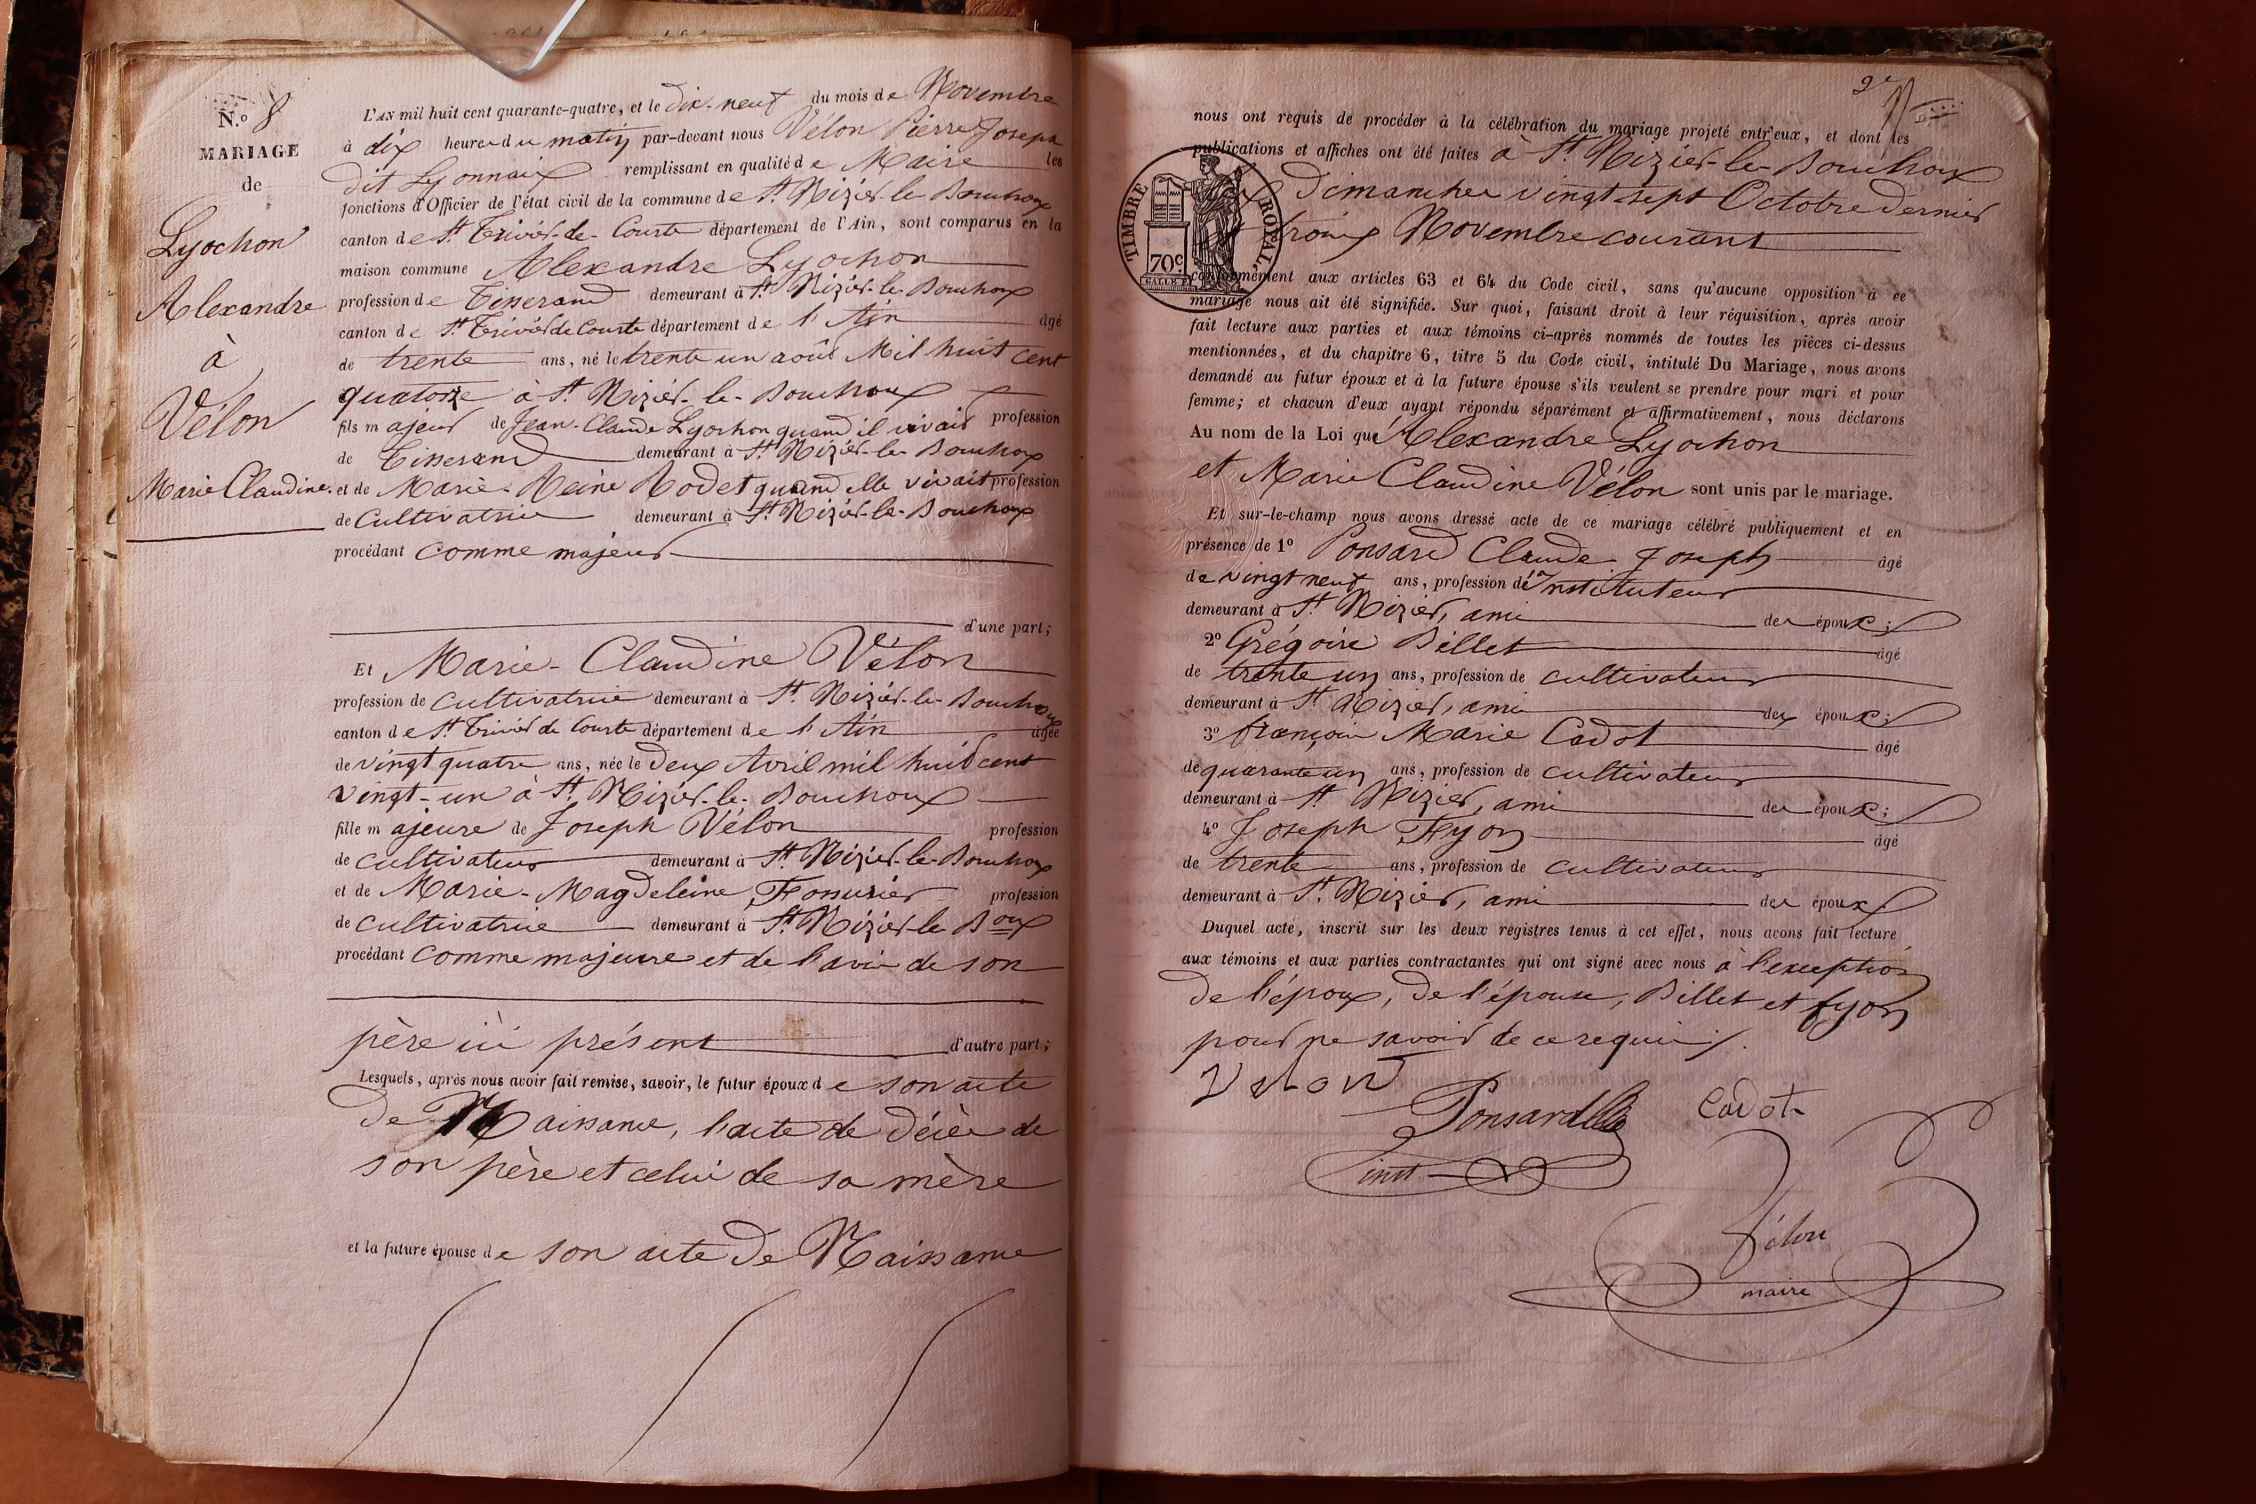 N.o 8
MARIAGE
de
Lyochon
Alexandre
à
Vélon
Marie Claudine.
L'AN mil huit cent quarante-quatre, et le dix-neuf du mois de Novembre
à dix heures du matin par-devant nous Vélon Pierre Joseph
dit Lyonnais remplissant en qualité de Maire les
fonctions d'Officier de l'état civil de la commune de St. Nizier-le-Bouchoux
canton de St. Trivier-de-Courte département de l'Ain, sont comparus en la
maison commune Alexandre Lyochon
profession de Tisserand demeurant à St. Nizier-le-Bouchoux
canton de St. Trivier de Courte département de l'Ain âgé
de trente ans, né le trente un août Mil huit cent
quatorze à St. Nizier-le-Bouchoux
fils majeur de Jean-Claude Lyochon quand il vivait profession
de Tisserand demeurant à St. Nizier-le-Bouchoux
et de Marie-Reine Rodet quand elle vivait profession
de Cultivatrice demeurant à St. Nizier-le-Bouchoux
procédant comme majeur
d'une part;
Et Marie-Claudine Vélon
profession de cultivatrice demeurant à St. Nizier-le-Bouchoux
canton de St. Trivier de Courte département de l'Ain âgée
de vingt quatre ans, née le deux Avril mil huit cent
vingt-un à St. Nizier-le-Bouchoux
fille majeure de Joseph Vélon profession
de cultivateur demeurant à St. Nizier-le-Bouchoux
et de Marie-Magdeleine profession
de cultivatrice demeurant à St. Nizier-le-Boux
procédant comme majeure et de l'avis de son
père ici présent d'autre part;
Lesquels, après nous avoir fait remise, savoir, le futur époux de son acte
de Naissance, l'acte de décès de
son père et celui de sa mère
et la future épouse de son acte de Naissance
nous ont requis de procéder à la célébration du mariage projeté entr'eux, et dont les
publications et affiches ont été faites à St. Nizier-le-Bouchoux
les Dimanches vingt sept Octobre dernier
et trois Novembre courant
TIMBRE ROYAL
70c.
conformément aux articles 63 et 64 du Code civil, sans qu'aucune opposition à ce
mariage nous ait été signifiée. Sur quoi, faisant droit à leur réquisition, après avoir
fait lecture aux parties et aux témoins ci-après nommés de toutes les pièces ci-dessus
mentionnées, et du chapitre 6, titre 5 du Code civil, intitulé Du Mariage, nous avons
demandé au futur époux et à la future épouse s'ils veulent se prendre pour mari et pour
femme; et chacun d'eux ayant répondu séparément et affirmativement, nous déclarons
Au nom de la Loi que Alexandre Lyochon
et Marie Claudine Vélon sont unis par le mariage.
Et sur-le-champ nous avons dressé acte de ce mariage célébré publiquement et en
présence de 1o Ponsard Claude Joseph âgé
de vingt neuf ans, profession d'instituteur
demeurant à St. Nizier, ami des époux;
2o Grégoire Billet âgé
de trente un ans, profession de cultivateur
demeurant à St. Nizier, ami des époux;
3o François Marie Cadot âgé
de quarante un ans, profession de cultivateur
demeurant à St. Nizier, ami des époux;
4o Joseph Fyon âgé
de trente ans, profession de cultivateur
demeurant à St. Nizier, ami des époux.
Duquel acte, inscrit sur les deux registres tenus à cet effet, nous avons fait lecture
aux témoins et aux parties contractantes qui ont signé avec nous à l'exception
de l'époux, de l'épouse, Billet et fyon
pour ne savoir de ce requis.
Velon
Ponsard
Cadot
inst
Vélon
maire